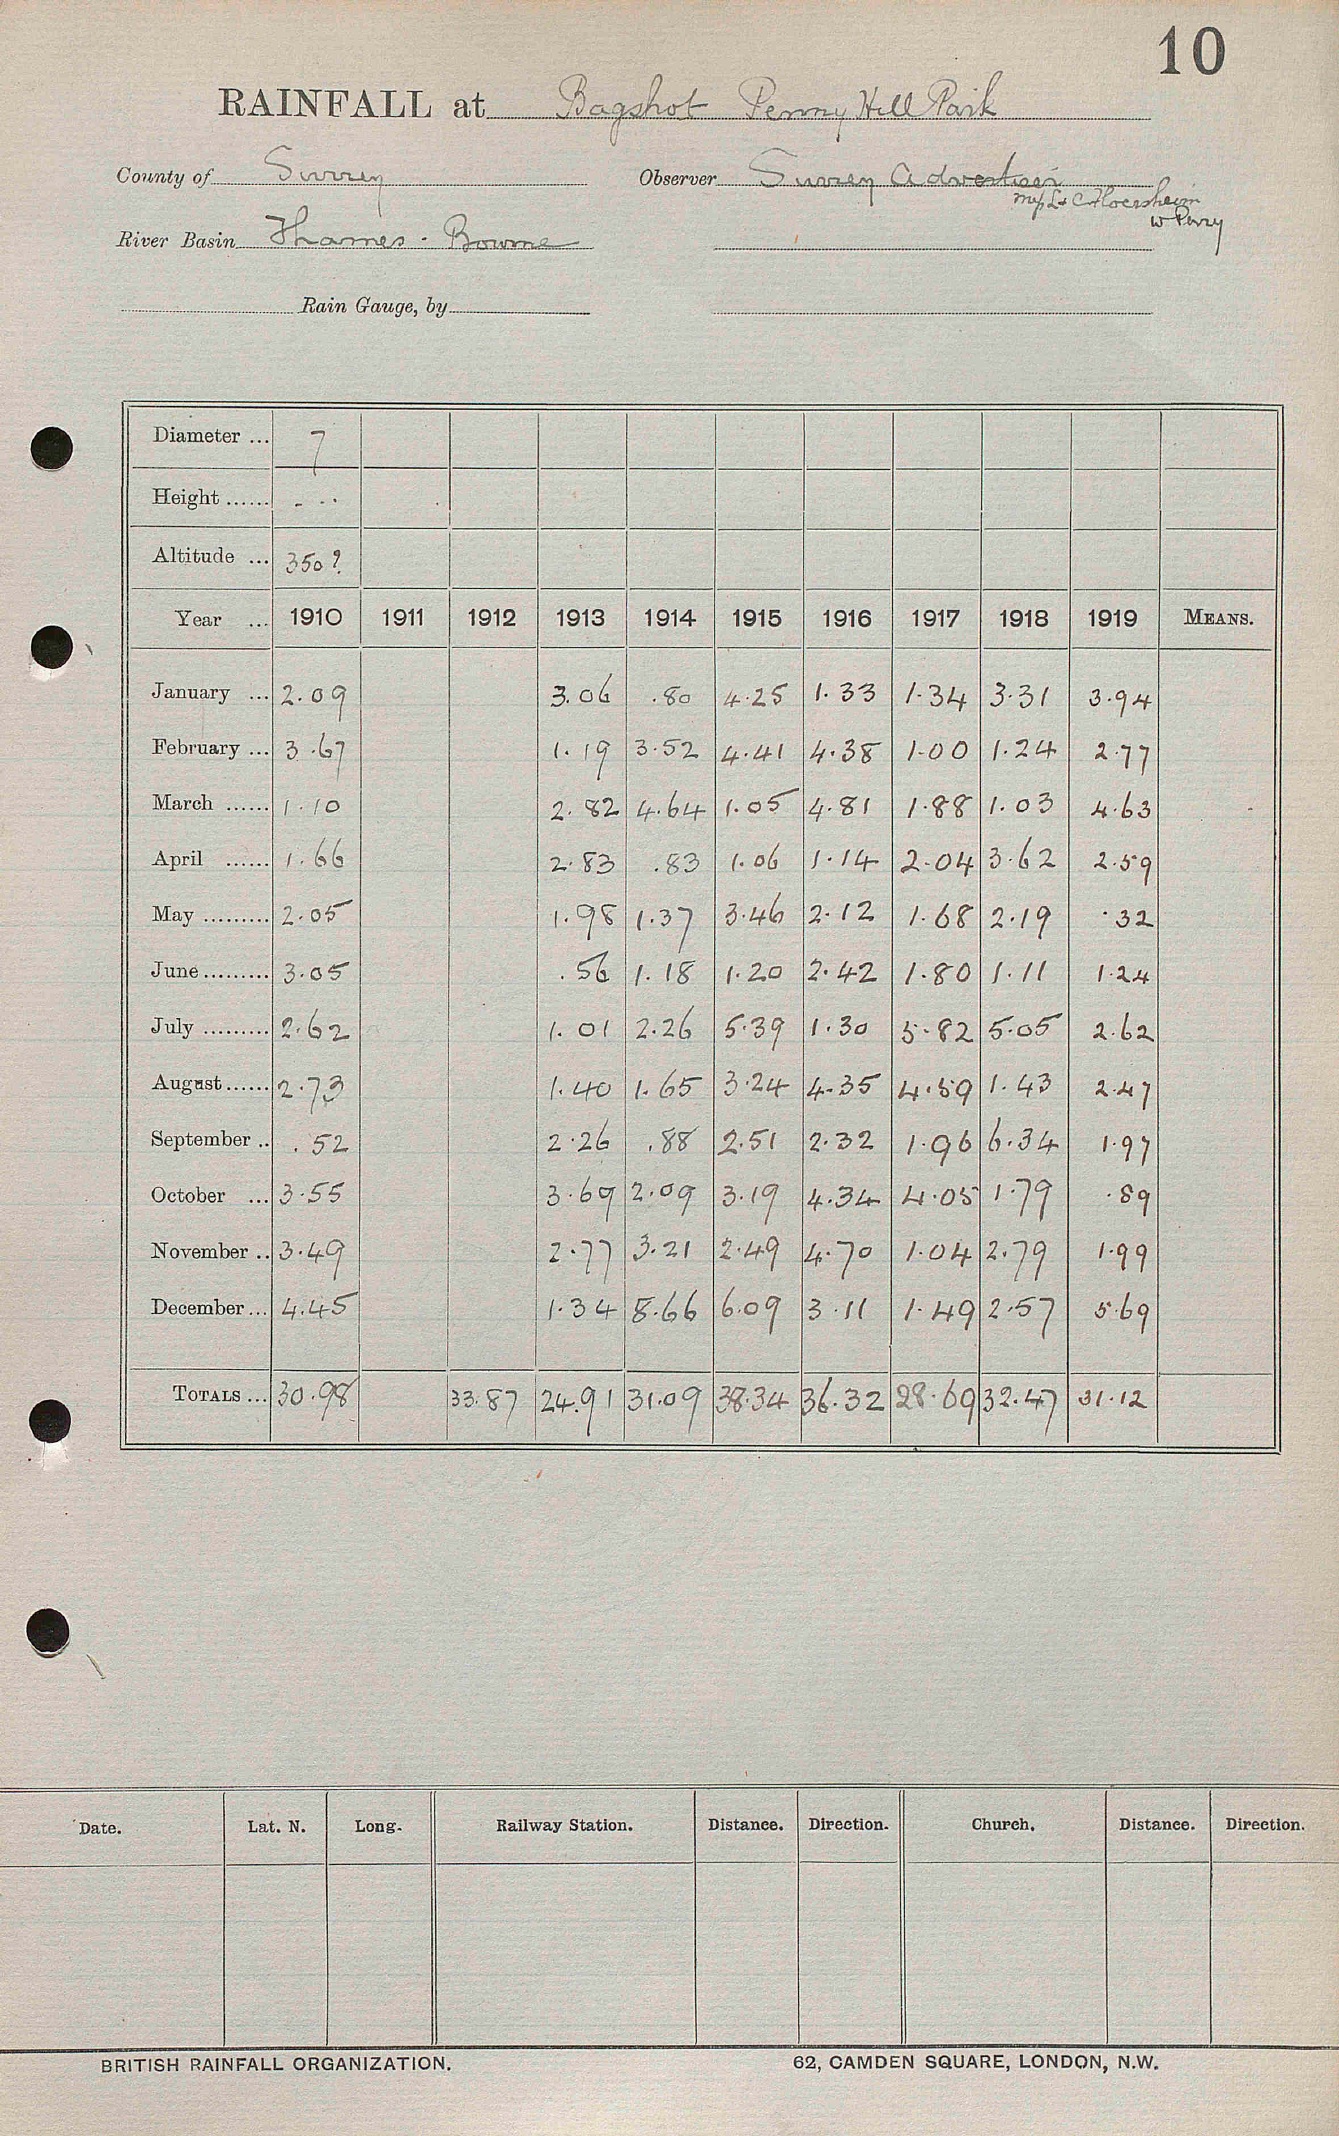 10
RAINFALL at Bagshot Penny Hill Park
County of Surrey Observer Surrey Advertiser
W Perry
River Basin Thames - Bourne
Rain Gauge, by
Diameter ... 7
Height ...... - - -
Altitude ... 350?
Year ... 1910 1911 1912 1913 1914 1915 1916 1917 1918 1919 MEANS.
January ... 2.09 3.06 .80 4.25 1.33 1.34 3.31 3.94
February ... 3.67 1.19 3.52 4.41 4.38 1.00 1.24 2.77
March ...... 1.10 2.82 4.64 1.05 4.81 1.88 1.03 4.63
April ...... 1.66 2.83 .83 1.06 1.14 2.04 3.62 2.59
May ......... 2.05 1.98 1.37 3.46 2.12 1.68 2.19 .32
June ......... 3.05 .56 1.18 1.20 2.42 1.80 1.11 1.24
July ......... 2.62 1.01 2.26 5.39 1.30 5.82 5.05 2.62
August ...... 2.73 1.40 1.65 3.24 4.35 4.59 1.43 2.47
September .. .52 2.26 .88 2.51 2.32 1.96 6.34 1.97
October ... 3.55 3.69 2.09 3.19 4.34 4.05 1.79 .89
November .. 3.49 2.77 3.21 2.49 4.70 1.04 2.79 1.99
December ... 4.45 1.34 8.66 6.09 3.11 1.49 2.57 5.69
TOTALS ... 30.98 33.87 24.91 31.09 38.34 36.32 28.69 32.47 31.12
Date. Lat. N. Long. Railway Station. Distance. Direction. Church. Distance. Direction.
BRITISH RAINFALL ORGANIZATION. 62, CAMDEN SQUARE, LONDON, N.W.